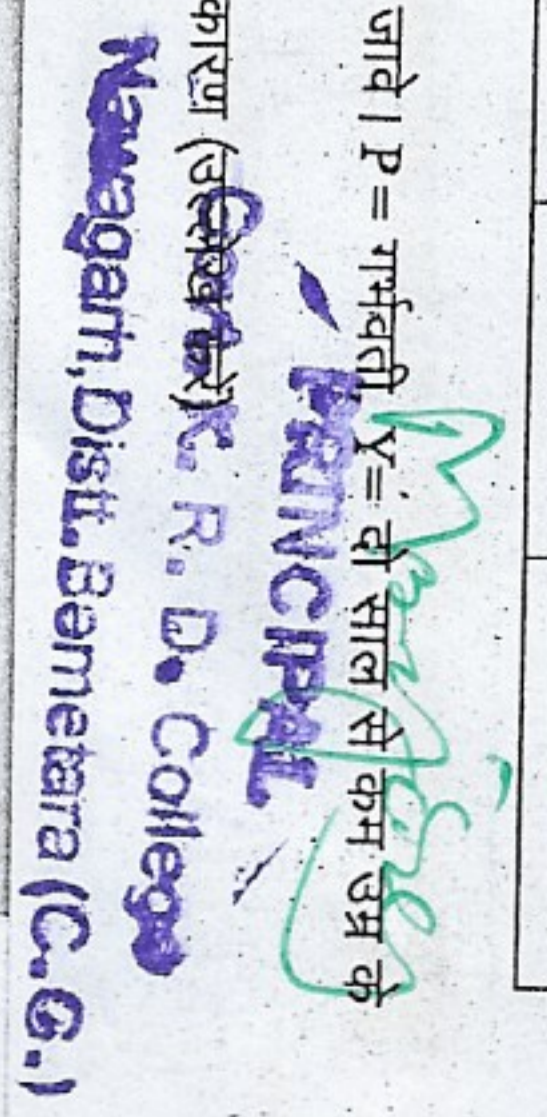 जावे। P = गर्भवती, Y= दो साल से कम उम्र के
कारण (उल्लेख करें)
PRINCIPAL
K. R. D. College
Nawagarh, Distt. Bemetara (C.G.)